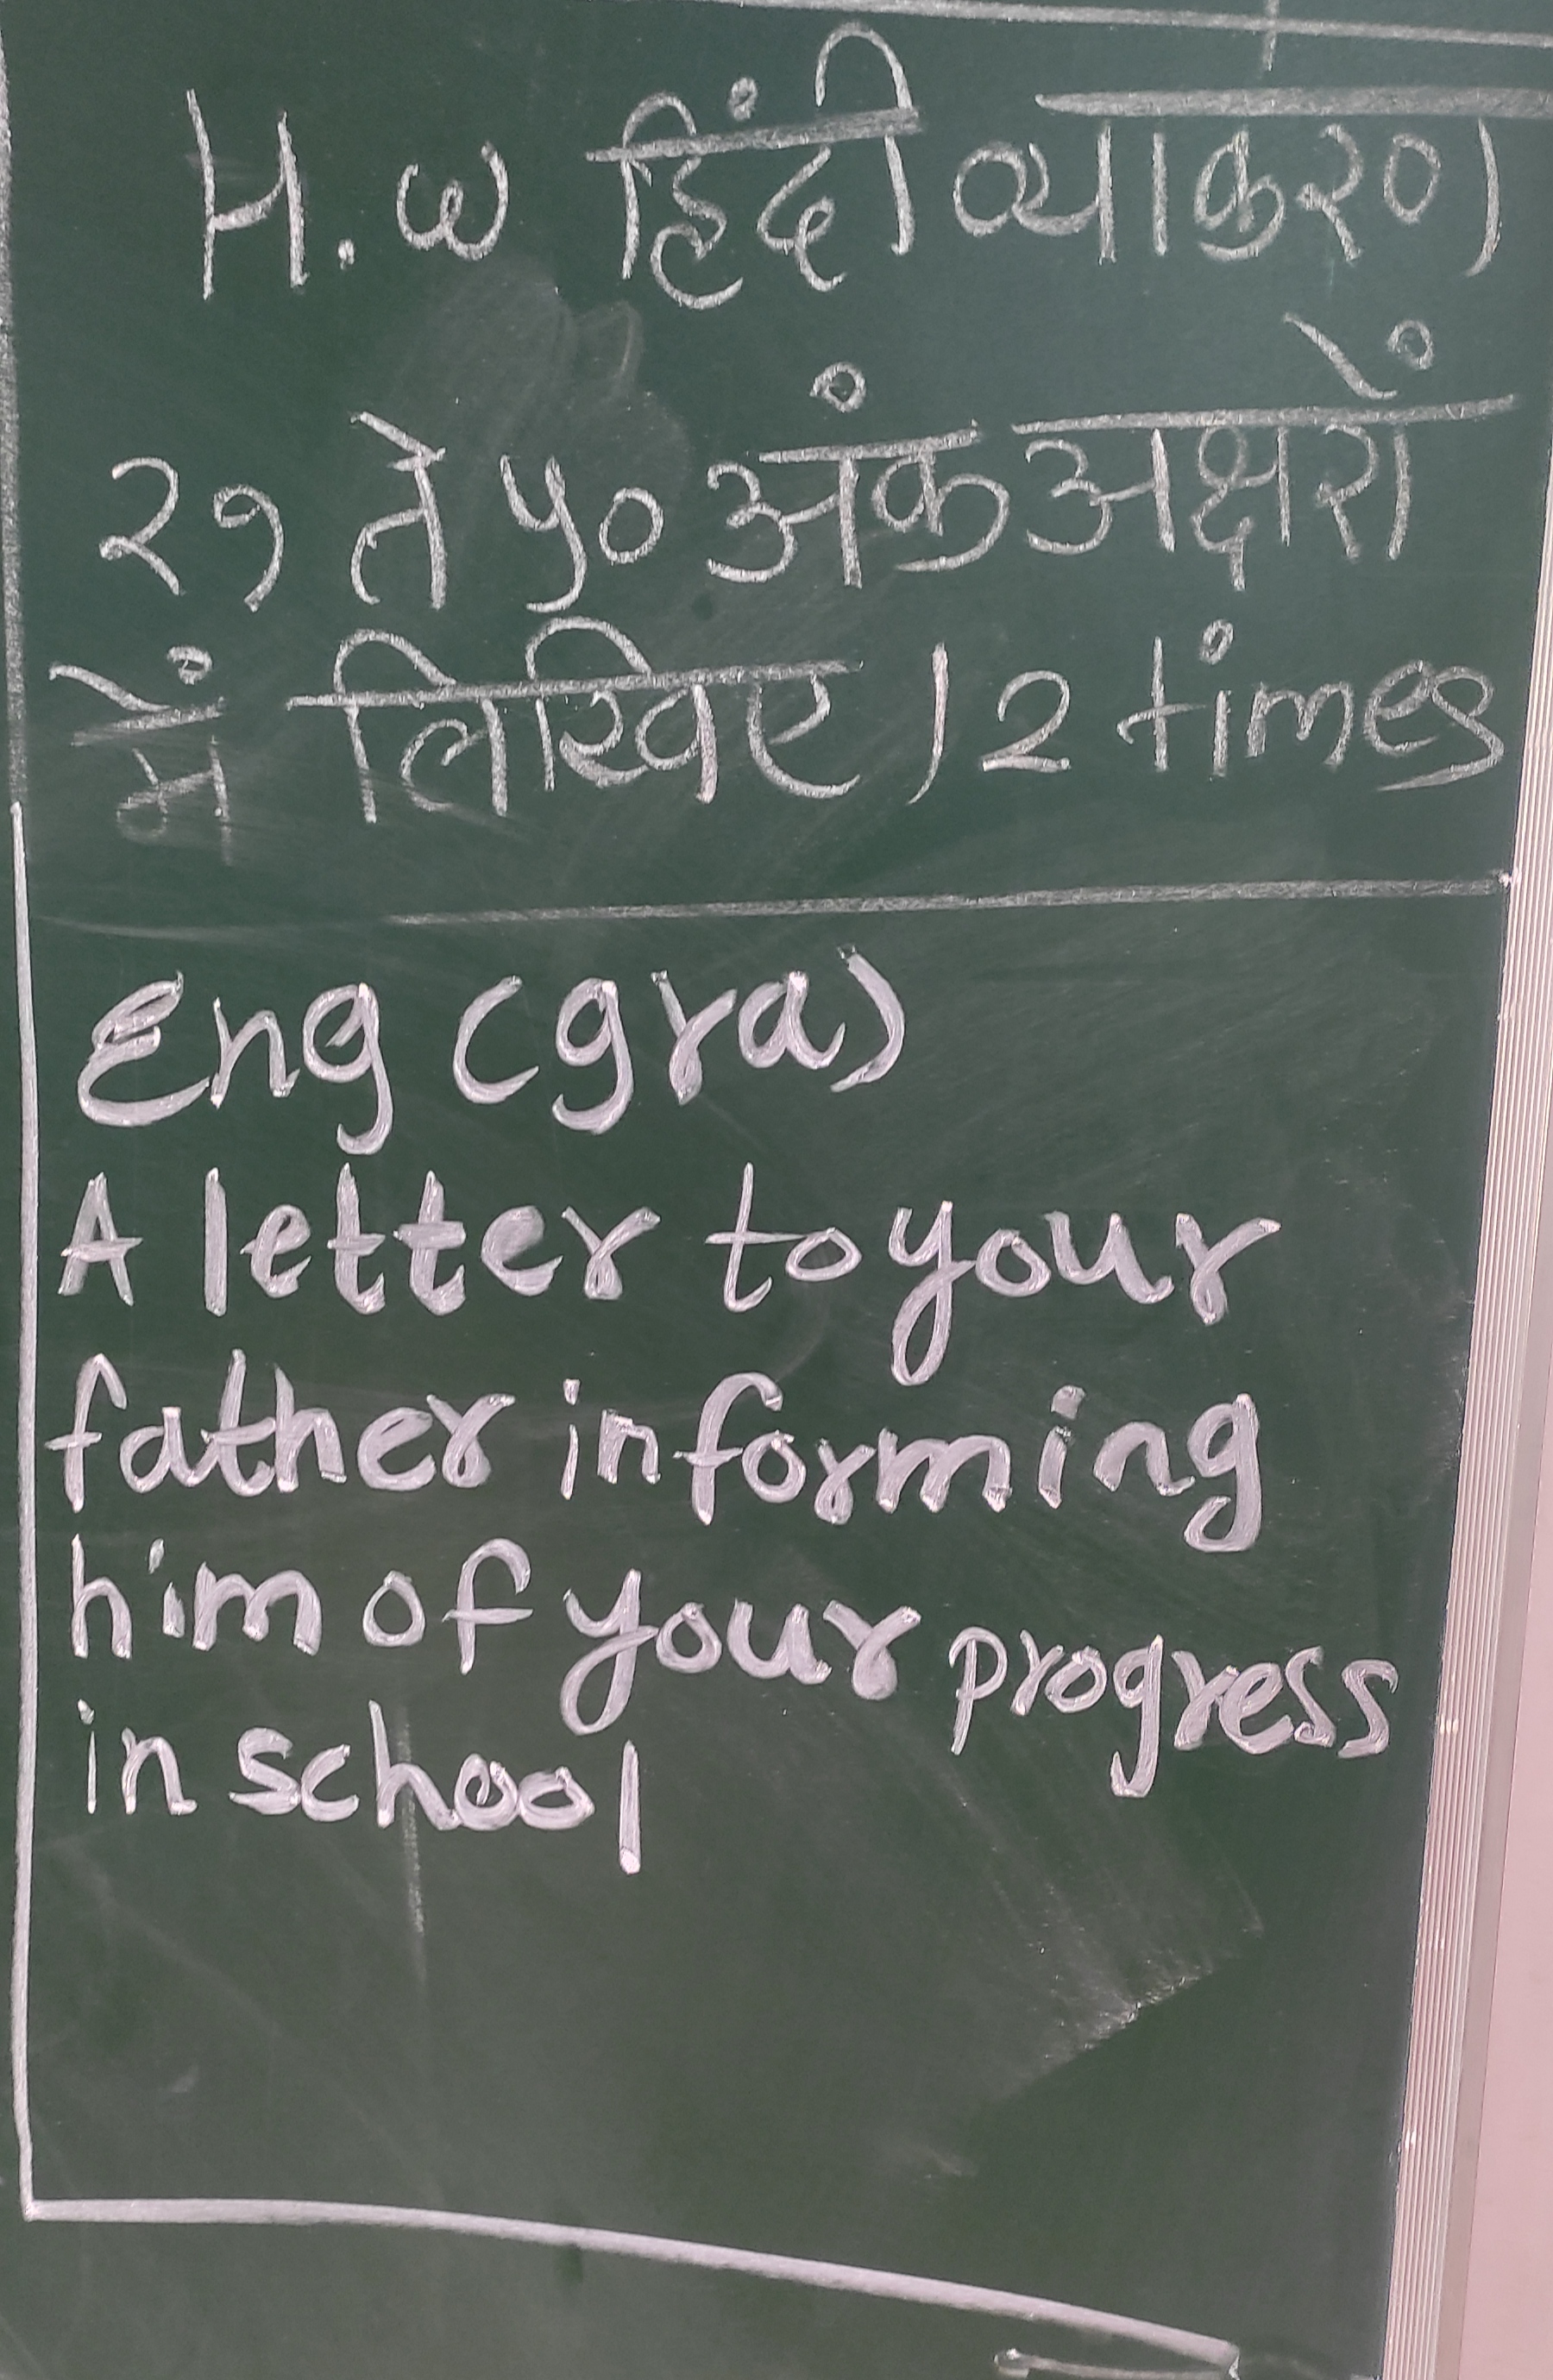 H.W हिंदी व्याकरण
२१ ते ५० अंक अक्षरों
में लिखिए। 2 times
Eng (gra)
A letter to your
father informing
him of your progress
in school